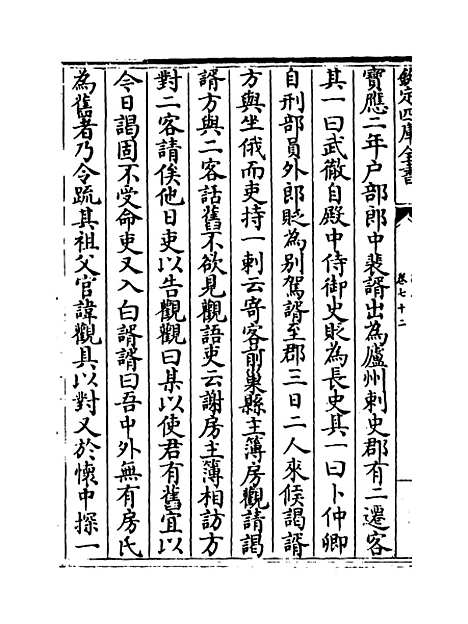 欽定四庫全書
卷七十二
寶應二年户部郎中裴諝出為廬州刺史郡有二遷客
其一曰武徹自殿中侍御史貶為長史其一曰卜仲卿
自刑部員外郎貶為别駕諝至郡三日二人來候謁諝
方與坐俄而吏持一刺云寄客前巢縣主簿房觀請謁
諝方與二客話舊不欲見觀語吏云謝房主簿相訪方
對二客請俟他日吏以告觀觀曰某以使君有舊宜以
今日謁固不受命吏又入白諝諝曰吾中外無有房氏
為舊者乃令疏其祖父官諱觀具以對又於懷中探一